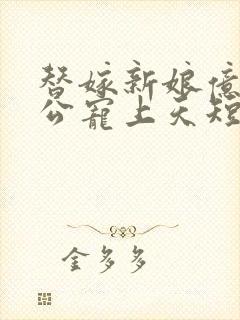 替嫁新娘億
公寵上天短
金多多